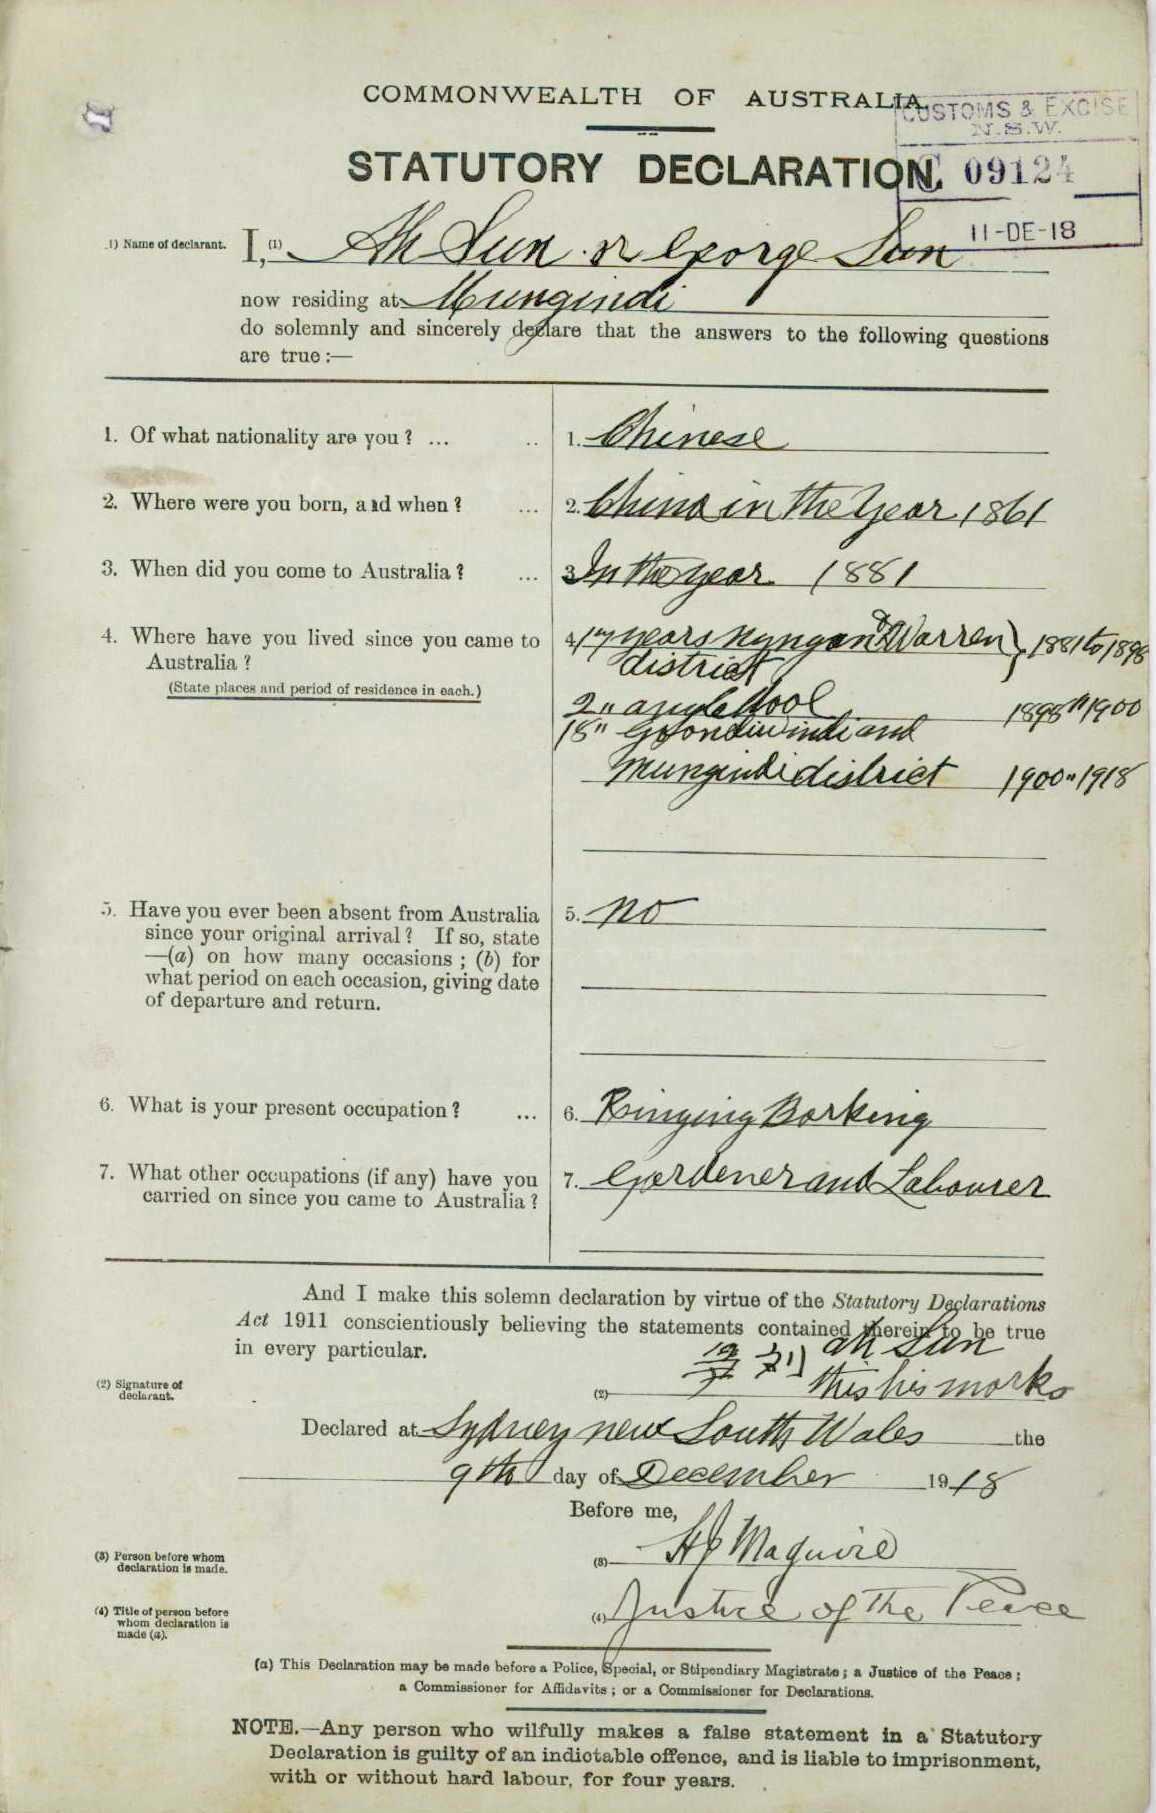 COMMONWEALTH OF AUSTRALIA.
CUSTOMS & EXCISE
N.S.W.
STATUTORY DECLARATION.
C 09124
11-DE-18
(1) Name of declarant. I, (1) Ah Sun or George Sun
now residing at Mungindi
do solemnly and sincerely declare that the answers to the following questions
are true:—
1. Of what nationality are you? ... .. 1. Chinese
2. Where were you born, and when? ... 2. China in the Year 1861
3. When did you come to Australia? ... 3. In the year 1881
4. Where have you lived since you came to Australia? 4. 17 years Nyngan & Warren } 1881 to 1898
district
(State places and period of residence in each.)
2 " angledool 1898 " 1900
18 " Goondiwindi and
Mungindi district 1900 " 1918
5. Have you ever been absent from Australia 5. no
since your original arrival? If so, state
—(a) on how many occasions; (b) for
what period on each occasion, giving date
of departure and return.
6. What is your present occupation? ... 6. Ringing Barking
7. What other occupations (if any) have you 7. Gardener and Labourer
carried on since you came to Australia?
And I make this solemn declaration by virtue of the Statutory Declarations
Act 1911 conscientiously believing the statements contained therein to be true
in every particular.
ah Sun
(2) Signature of declarant. (2) this his marks
Declared at Sydney new South Wales the
9th day of December 1918
Before me,
(3) Person before whom declaration is made. (3) H J Maguire
(4) Title of person before whom declaration is made (a). (4) Justice of The Peace
(a) This Declaration may be made before a Police, Special, or Stipendiary Magistrate; a Justice of the Peace;
a Commissioner for Affidavits; or a Commissioner for Declarations.
NOTE.—Any person who wilfully makes a false statement in a Statutory
Declaration is guilty of an indictable offence, and is liable to imprisonment,
with or without hard labour, for four years.